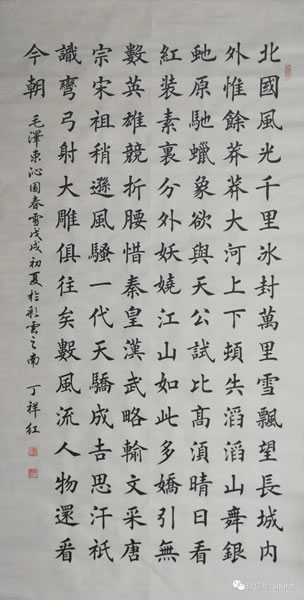 北國風光千里冰封萬里雪飄望長城內
外惟餘莽莽大河上下頓失滔滔山舞銀
虵原馳蠟象欲與天公試比高須晴日看
紅裝素裹分外妖嬈江山如此多嬌引無
數英雄競折腰惜秦皇漢武略輸文采唐
宗宋祖稍遜風騷一代天驕成吉思汗祇
識彎弓射大雕俱往矣數風流人物還看
今朝 毛澤東沁園春雪戊戌初夏於彩雲之南 丁祥紅